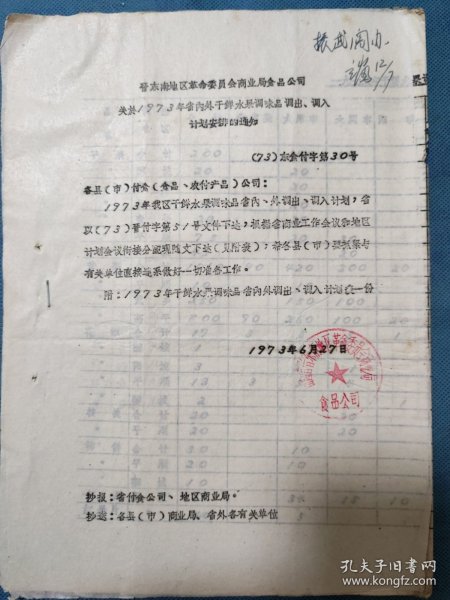 晋东南地区革命委员会商业局食品公司
关于1973年省内外干鲜水果调味品调出、调入
计划安排的通知
(73)东食付字第30号
各县(市)付食(食品、农付产品)公司:
1973年我区干鲜水果调味品省内、外调出、调入计划,省
以(73)晋付字第51号文件下达,根据省商业工作会议和地区
计划会议衔接分配现随文下达(见附表),希各县(市)抓紧与
有关单位直接连系做好一切准备工作。
附:1973年干鲜水果调味品省内外调出、调入计划表一份
1973年6月27日
食品公司
抄报:省付食公司、地区商业局。
抄送:各县(市)商业局、省外各有关单位
孔夫子旧书网
www.kongfz.com